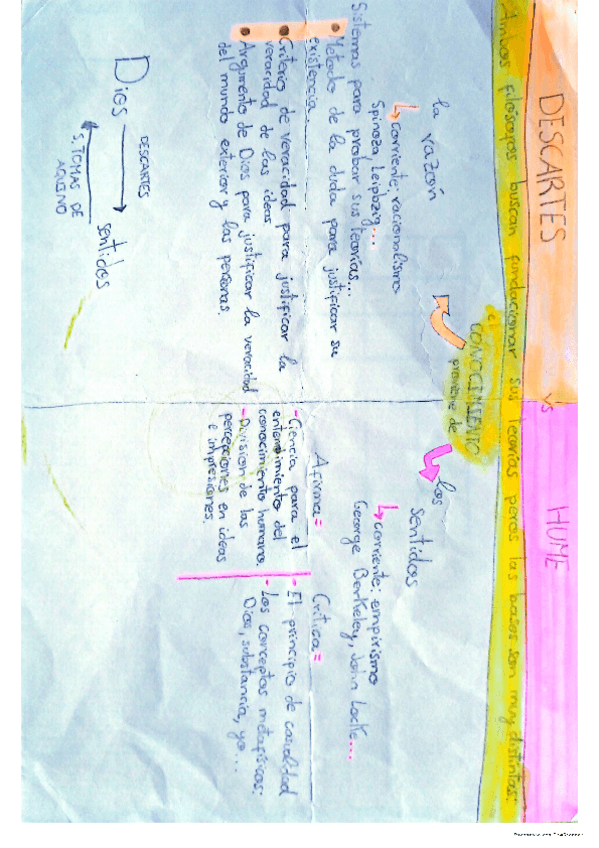 DESCARTES vs HUME
Ambos filósofos buscan fundacionar sus teorías peros las bases son muy distintas:
el
CONOCIMIENTO
proviene de
la razón
↳ corriente: racionalismo
Spinoza Leipbzig...
Sistemas para probar sus teorías...
• Método de la duda para justificar su
existencia.
• Criterio de veracidad para justificar la
veracidad de las ideas
• Argumento de Dios para justificar la veracidad
del mundo exterior y las personas.
DESCARTES
Dios → sentidos
S. TOMAS DE
AQUINO
los
sentidos
↳ corriente: empirismo
George Berkeley, John Locke...
Afirma=
- Ciencia para el
entendimiento del
conocimiento humano.
- División de las
percepciones en ideas
e impresiones.
Crítica=
- El principio de caualidad
- Los conceptos metafísicas:
Dios, substancia, yo...